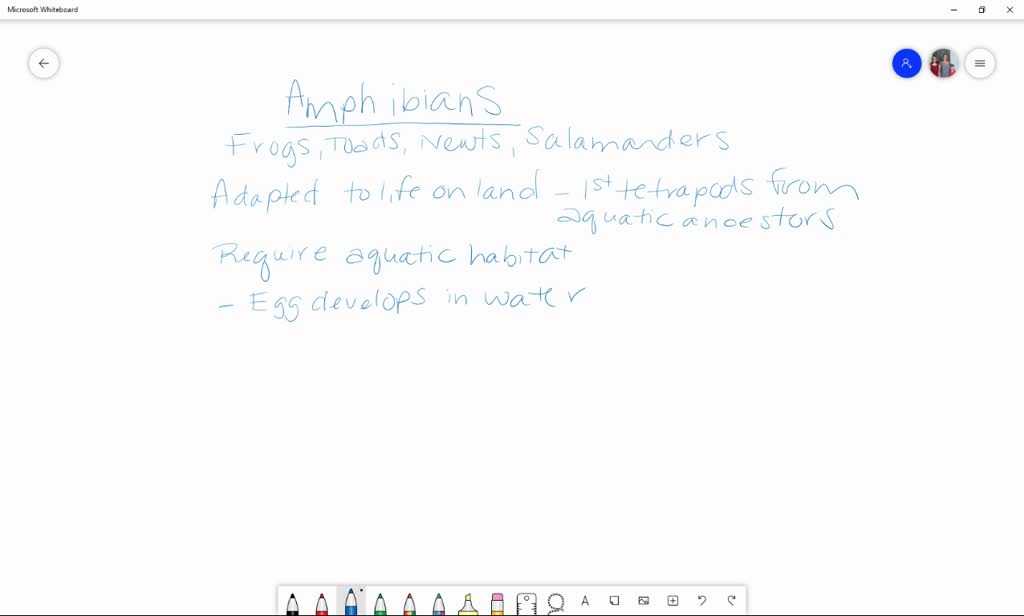 Microsoft Whiteboard
Amphibians
Frogs, Toads, Newts, Salamanders
Adapted to life on land - 1st tetrapods from
aquatic ancestors
Require aquatic habitat
- Egg develops in water
A